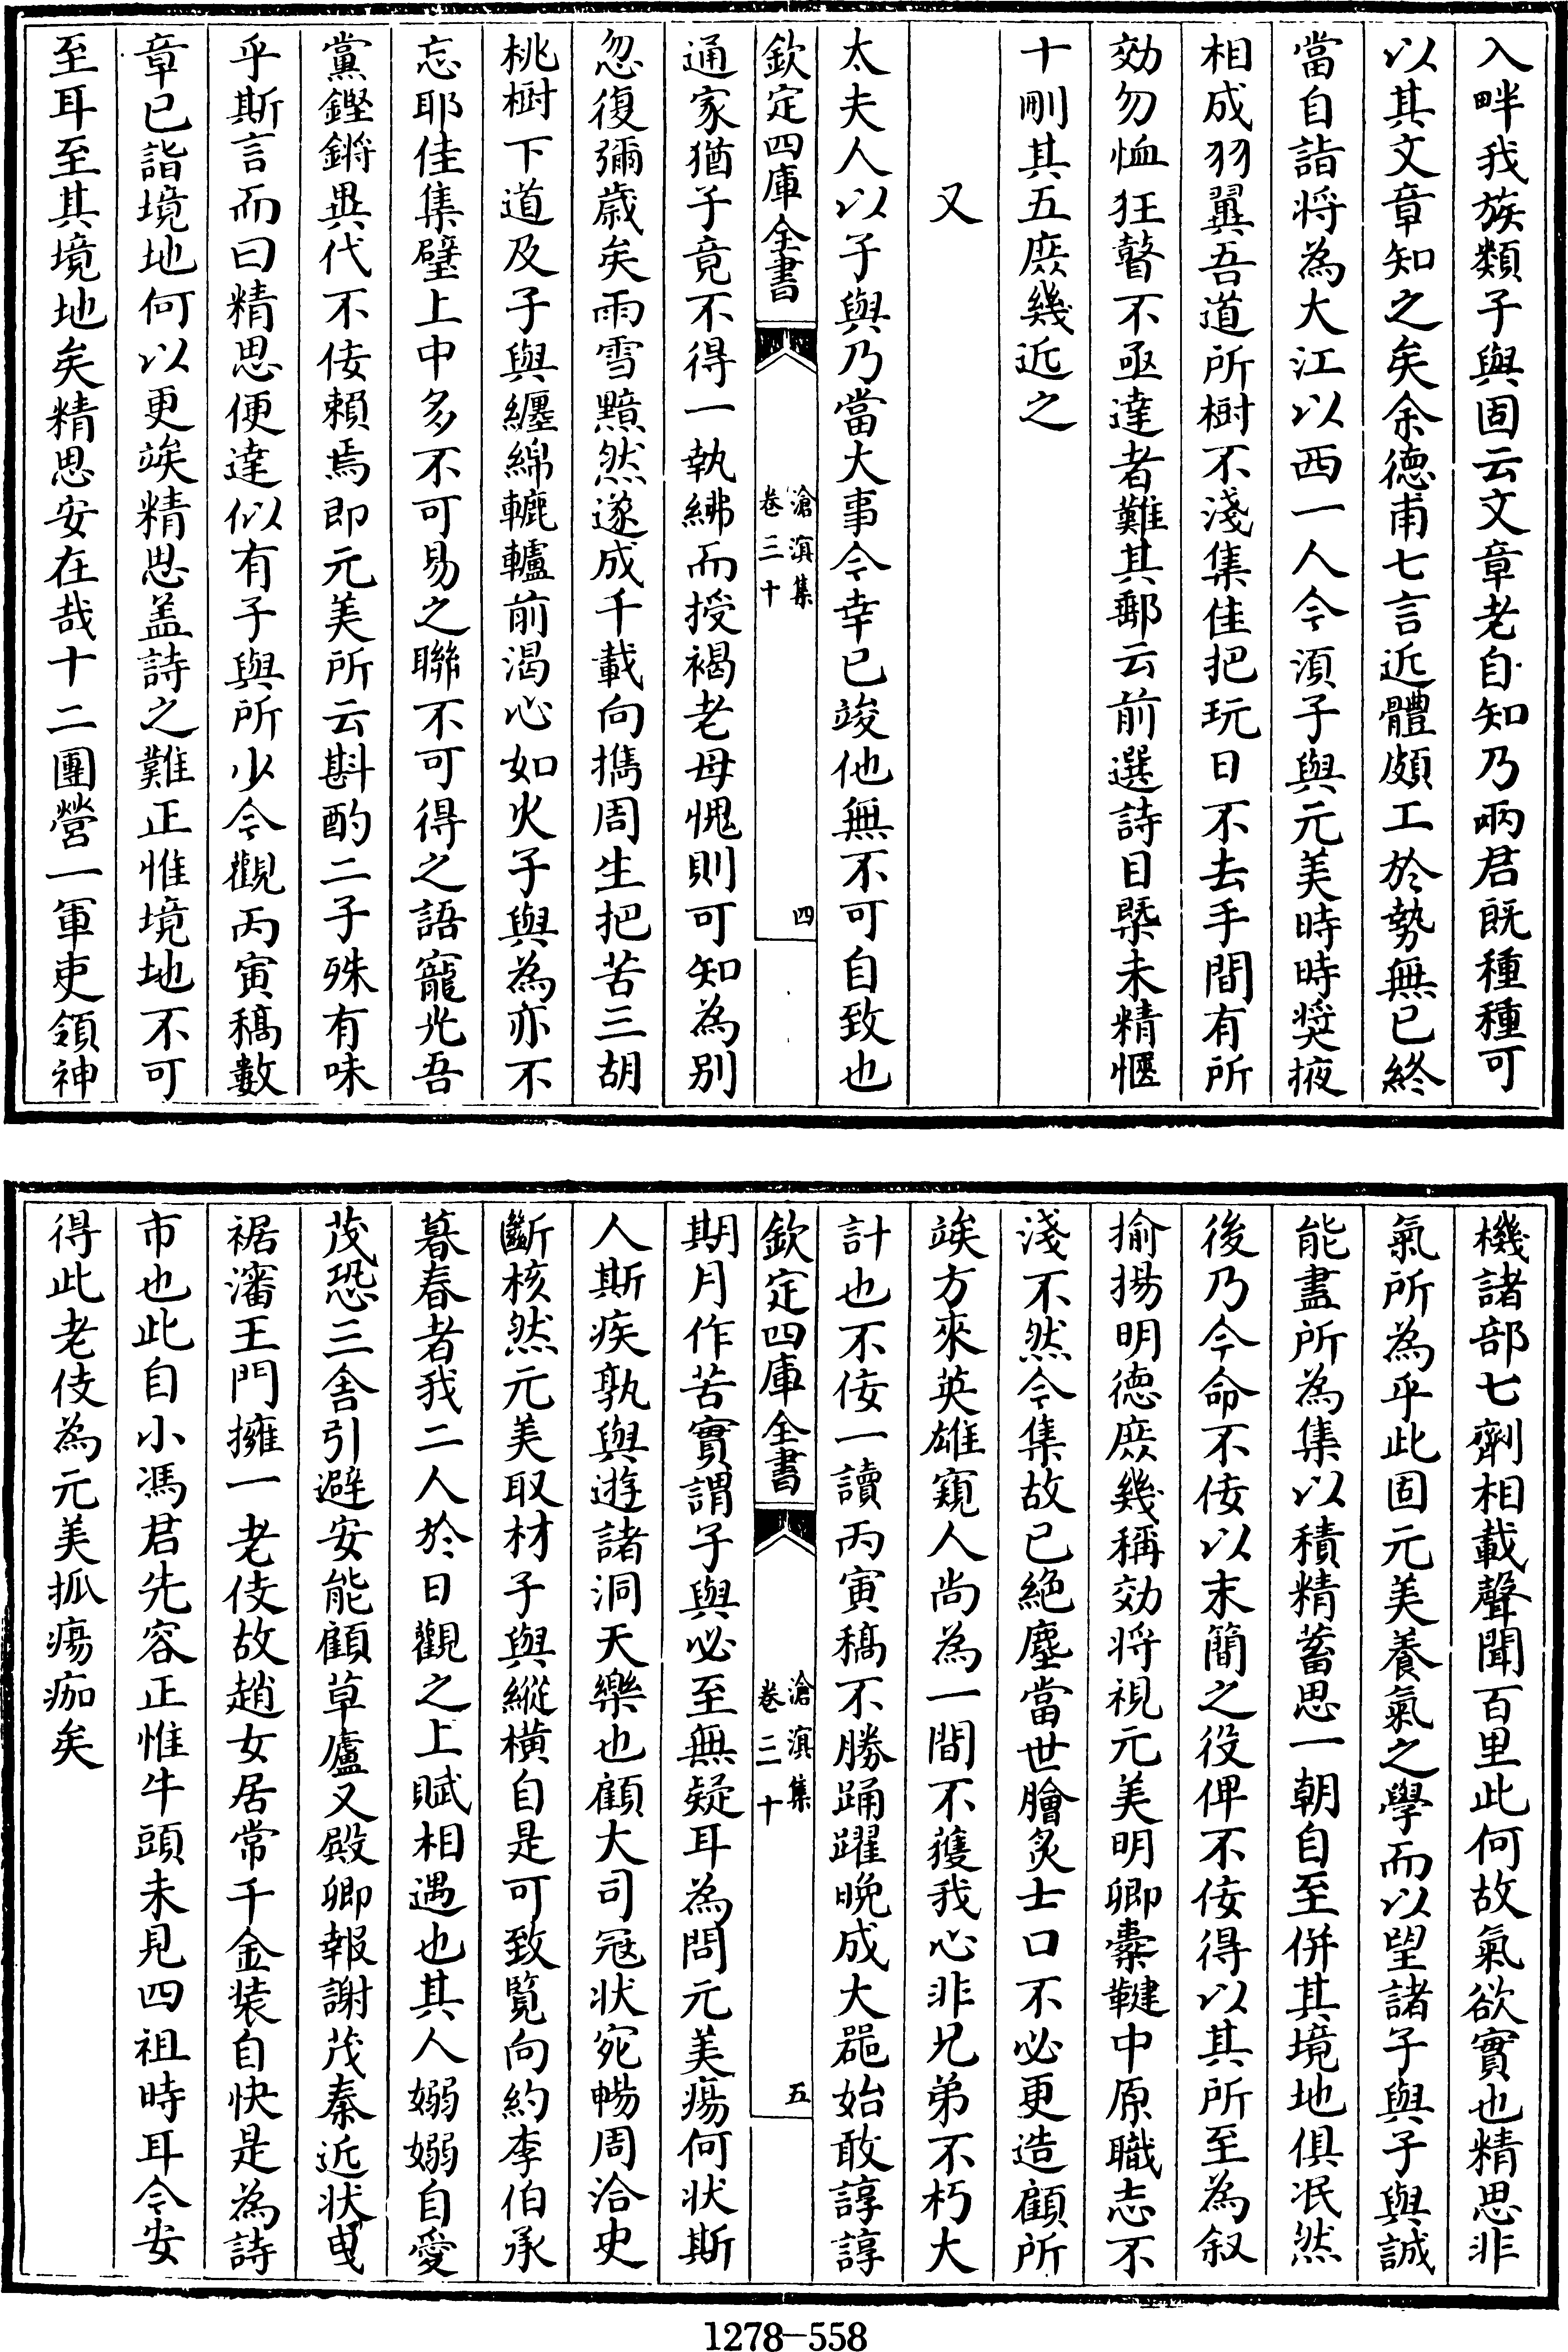 入畔我族類子與固云文章老自知乃兩君既種種可
以其文章知之矣余徳甫七言近體頗工於勢無已終
當自詣将為大江以西一人今湏子與元美時時奨掖
相成羽翼吾道所樹不淺集佳把玩日不去手間有所
効勿恤狂瞽不亟達者難其郵云前選詩目槩未精愜
十刪其五庶幾近之
又
太夫人以子與乃當大事今幸已竣他無不可自致也
欽定四庫全書
滄溟集
卷三十
四
通家猶子竟不得一執紼而授褐老母愧則可知為别
忽復彌歳矣雨雪黯然遂成千載向攜周生把苦三胡
桃樹下道及子與纏綿轆轤前渴心如火子與為亦不
忘耶佳集璧上中多不可易之聯不可得之語寵光吾
黨鏗鏘異代不佞頼焉即元美所云斟酌二子殊有味
乎斯言而曰精思便達似有子與所少今觀丙寅稿數
章已詣境地何以更竢精思盖詩之難正惟境地不可
至耳至其境地矣精思安在哉十二團營一軍吏領神
機諸部七劑相載聲聞百里此何故氣欲實也精思非
氣所為乎此固元美養氣之學而以望諸子與子與誠
能盡所為集以積精蓄思一朝自至併其境地俱泯然
後乃今命不佞以末簡之役俾不佞得以其所至為叙
揄揚明徳庶幾稱効将視元美明卿櫜鞬中原職志不
淺不然今集故已絶塵當世膾炙士口不必更造顧所
竢方來英雄窺人尚為一間不獲我心非兄弟不朽大
計也不佞一讀丙寅稿不勝踊躍晚成大噐始敢諄諄
欽定四庫全書
滄溟集
卷三十
五
期月作苦實謂子與必至無疑耳為問元美瘍何状斯
人斯疾孰與遊諸洞天樂也顧大司冦状宛暢周洽史
斷核然元美取材子與縱横自是可致覧向約李伯承
暮春者我二人於日觀之上賦相遇也其人嫋嫋自愛
茂恐三舍引避安能顧草廬又殿卿報謝茂秦近状曵
裾瀋王門擁一老伎故趙女居常千金装自快是為詩
市也此自小馮君先容正惟牛頭未見四祖時耳今安
得此老伎為元美抓瘍痂矣
1278—558